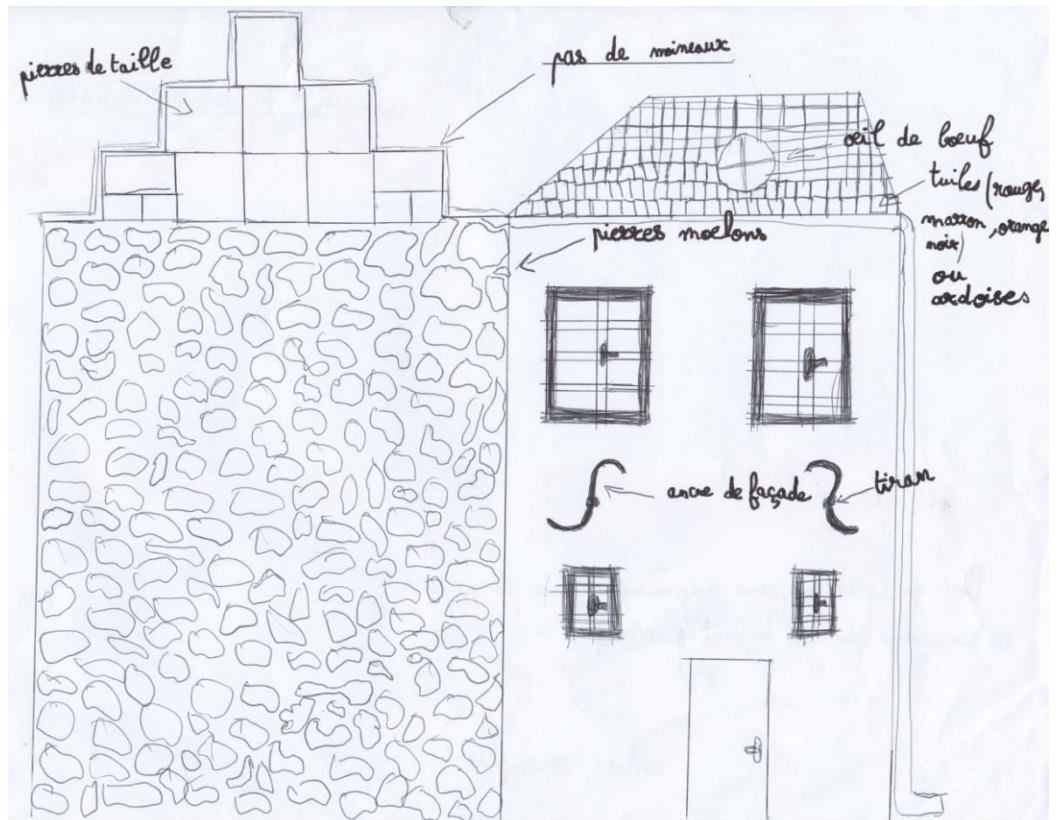 pierres de taille
pas de moineaux
œil de bœuf
tuiles (rouge,
marron, orange
noir)
ou
ardoises
pierres moelons
ancre de façade
tiran